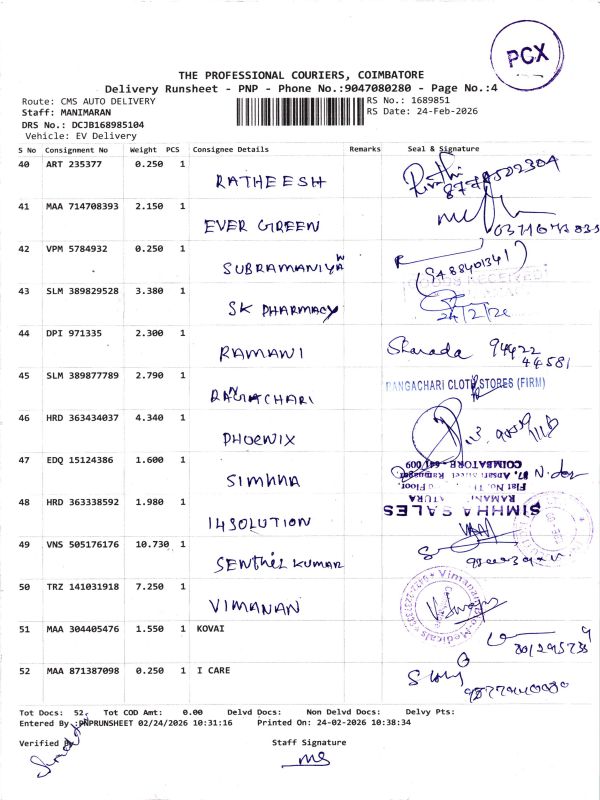 PCX
THE PROFESSIONAL COURIERS, COIMBATORE
Delivery Runsheet - PNP - Phone No.:9047080280 - Page No.:4
Route: CMS AUTO DELIVERY RS No.: 1689851
Staff: MANIMARAN RS Date: 24-Feb-2026
DRS No.: DCJB168985104
Vehicle: EV Delivery
S No Consignment No Weight PCS Consignee Details Remarks Seal & Signature
40 ART 235377 0.250 1
RATHEESH
41 MAA 714708393 2.150 1
EVER GREEN
42 VPM 5784932 0.250 1
SUBRAMANIYAN
43 SLM 389829528 3.380 1
SK PHARMACY
24/2/26
44 DPI 971335 2.300 1
RAMANI Sharada 94422
44581
45 SLM 389877789 2.790 1
RANGACHARI RANGACHARI CLOTH STORES (FIRM)
46 HRD 363434037 4.340 1
PHOENIX
47 EDQ 15124386 1.600 1
SIMHHA
COIMBATORE - 641 009
48 HRD 363338592 1.980 1
SIMHHA SALES
I4SOLUTION
49 VNS 505176176 10.730 1
SENTHIL KUMAR
50 TRZ 141031918 7.250 1
VIMANAN
51 MAA 304405476 1.550 1 KOVAI
52 MAA 871387098 0.250 1 I CARE
Tot Docs: 52 Tot COD Amt: 0.00 Delvd Docs: Non Delvd Docs: Delvy Pts:
Entered By :PNPRUNSHEET 02/24/2026 10:31:16 Printed On: 24-02-2026 10:38:34
Verified By Staff Signature